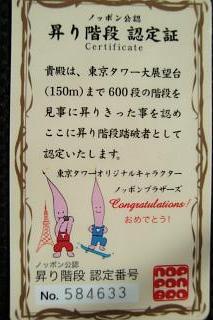 ノッポン公認
昇り階段 認定証
Certificate
貴殿は、東京タワー大展望台
(150m)まで600段の階段を
見事に昇りきった事を認め
ここに昇り階段踏破者として
認定いたします。
東京タワーオリジナルキャラクター
ノッポンブラザーズ
Congratulations!
おめでとう!
ノッポン公認
昇り階段 認定番号
No. 584633
NOP
PON
BRO